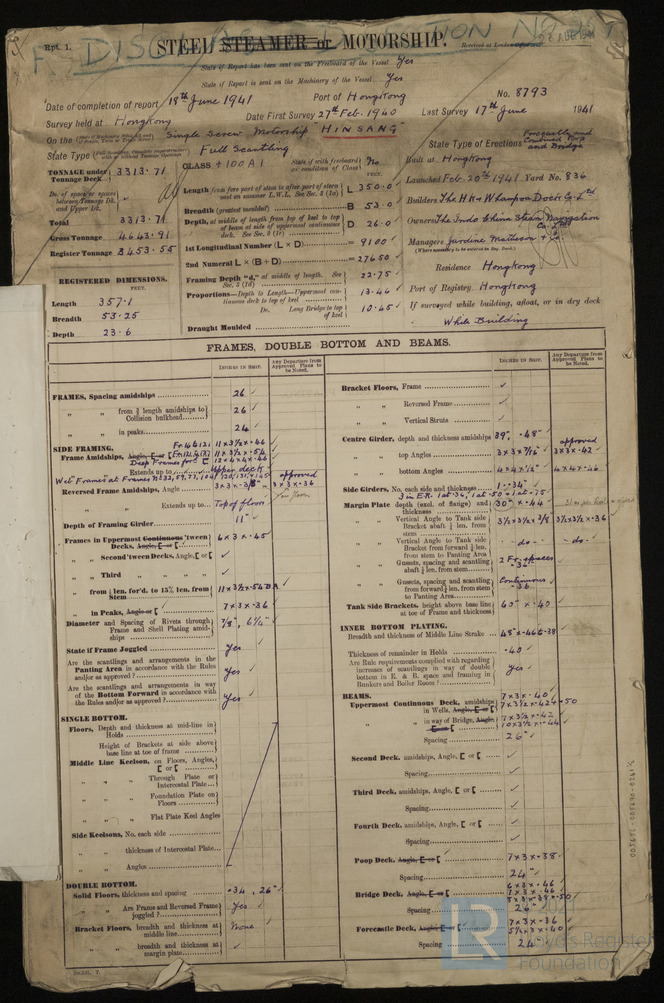 Rpt. 1.
STEEL STEAMER or MOTORSHIP.
Received at London Office
State if Report has been sent on the Freeboard of the Vessel Yes
State if Report is sent on the Machinery of the Vessel Yes
Date of completion of report 18th June 1941 Port of Hongkong No. 8793
Survey held at Hongkong Date First Survey 27th Feb. 1940 Last Survey 17th June 1941
On the Single Screw Motorship "HINSANG"
State Type Full Scantling
State Type of Erections Forecastle and Combined Poop and Bridge
TONNAGE under Tonnage Deck 3313.71
Do. of space or spaces between Tonnage Dk. and Upper Dk.
Total 3313.71
Gross Tonnage 4643.91
Register Tonnage 3453.55
REGISTERED DIMENSIONS.
FEET.
Length 357.1
Breadth 53.25
Depth 23.6
CLASS +100A1 State if with freeboard as condition of Class No
Length from fore part of stem to after part of stern post on summer L.W.L. See Sec. 3 (1a) L 350.0
Breadth (greatest moulded) B 53.0
Depth, at middle of length from top of keel to top of beam at side of uppermost continuous deck. See Sec. 3 (1c) D 26.0
1st Longitudinal Number (L × D) = 9100
2nd Numeral L × (B + D) = 27650
Framing Depth "d," at middle of length. See Sec. 3 (1d) 22.75
Proportions—Depth to Length—Uppermost continuous deck to top of keel 13.46
Do. Long Bridge to top of keel 10.45
Draught Moulded
Built at Hongkong
Launched Feb. 20th 1941 Yard No. 836
Builders The H.K. & Whampoa Dock Co. Ltd
Owners The Indo China Steam Navigation Co. Ltd
Managers Jardine Matheson & Co.
Residence Hongkong
Port of Registry Hongkong
If surveyed while building, afloat, or in dry dock
While Building
FRAMES, DOUBLE BOTTOM AND BEAMS.
INCHES IN SHIP. Any Departure from Approved Plans to be Noted.
FRAMES, Spacing amidships 26
" " from ⅗ length amidships to Collision bulkhead 26
" " in peaks 24
SIDE FRAMING.
Frame Amidships, Angle, E or [ 11 x 3½ x .46
11 x 3½ x .54
Deep Frames for 5 [ 12 x 4 x 4 x .46
Extends up to Upper deck
Reversed Frame Amidships, Angle 3 x 3 x .38 approved 3 x 3 x .36
" " Extends up to Top of floor
Depth of Framing Girder 11"
Frames in Uppermost Continuous 'tween Decks, Angle, E or [ 6 x 3 x .45
" Second 'tween Decks, Angle, E or [
" Third " " " "
" from ⅕ len. for'd. to 15% len. from Stem 11 x 3½ x .54 BA
" in Peaks, Angle or [ 7 x 3 x .36
Diameter and Spacing of Rivets through Frame and Shell Plating amidships 7/8", 6¼"
State if Frame Joggled Yes
Are the scantlings and arrangements in the Panting Area in accordance with the Rules and/or as approved? Yes
Are the scantlings and arrangements in way of the Bottom Forward in accordance with the Rules and/or as approved? Yes
SINGLE BOTTOM.
Floors, Depth and thickness at mid-line in Holds
Height of Brackets at side above base line at toe of frame
Middle Line Keelson, on Floors, Angles, E or [
" " Through Plate or Intercostal Plate
" " Foundation Plate on Floors
" " Flat Plate Keel Angles
Side Keelsons, No. each side
" " thickness of Intercostal Plate
" " Angles
DOUBLE BOTTOM.
Solid Floors, thickness and spacing .34, 26"
" " Are Frame and Reversed Frame joggled? Yes
Bracket Floors, breadth and thickness at middle line None
" " breadth and thickness at margin plate
Bracket Floors, Frame
" " Reversed Frame
" " Vertical Struts
Centre Girder, depth and thickness amidships 39", .48"
" " top Angles 3 x 3 x 7/16 approved 3 x 3 x .42
" " bottom Angles 4 x 4 x ½ 4 x 4 x .46
Side Girders, No. each side and thickness 1 - .34"
Margin Plate depth (excl. of flange) and thickness 30" x .44
" " Vertical Angle to Tank side Bracket abaft ¼ len. from stem 3½ x 3½ x 3/8 3½ x 3½ x .36
" " Vertical Angle to Tank side Bracket from forward ¼ len. from stem to Panting Area - do - - do -
" " Gussets, spacing and scantling abaft ¼ len. from stem 2 Fr. spaces .36
" " Gussets, spacing and scantling from forward ¼ len. from stem to Panting Area Continuous .36
Tank Side Brackets, height above base line at toe of Frame and thickness 60" x .40
INNER BOTTOM PLATING.
Breadth and thickness of Middle Line Strake 48" x .46 to .38
Thickness of remainder in Holds .40
Are Rule requirements complied with regarding increases of scantlings in way of double bottom in E. & B. space and framing in Bunkers and Boiler Room? Yes
BEAMS.
Uppermost Continuous Deck, amidships in Wells, Angle, E or [ 7 x 3 x .40
" " in way of Bridge, Angle, E or [ 7 x 3½ x .42
10 x 3½ x .44
Spacing 26"
Second Deck, amidships, Angle, E or [
Spacing
Third Deck, amidships, Angle, E or [
Spacing
Fourth Deck, amidships, Angle, E or [
Spacing
Poop Deck, Angle, E or [ 7 x 3 x .38
Spacing 24"
Bridge Deck, Angle, E or [ 6 x 3 x .46
7 x 3 x .46
Spacing 26"
Forecastle Deck, Angle, E or [ 7 x 3 x .36
5½ x 3 x .40
Spacing 24"
LR
Lloyd's Register
Foundation